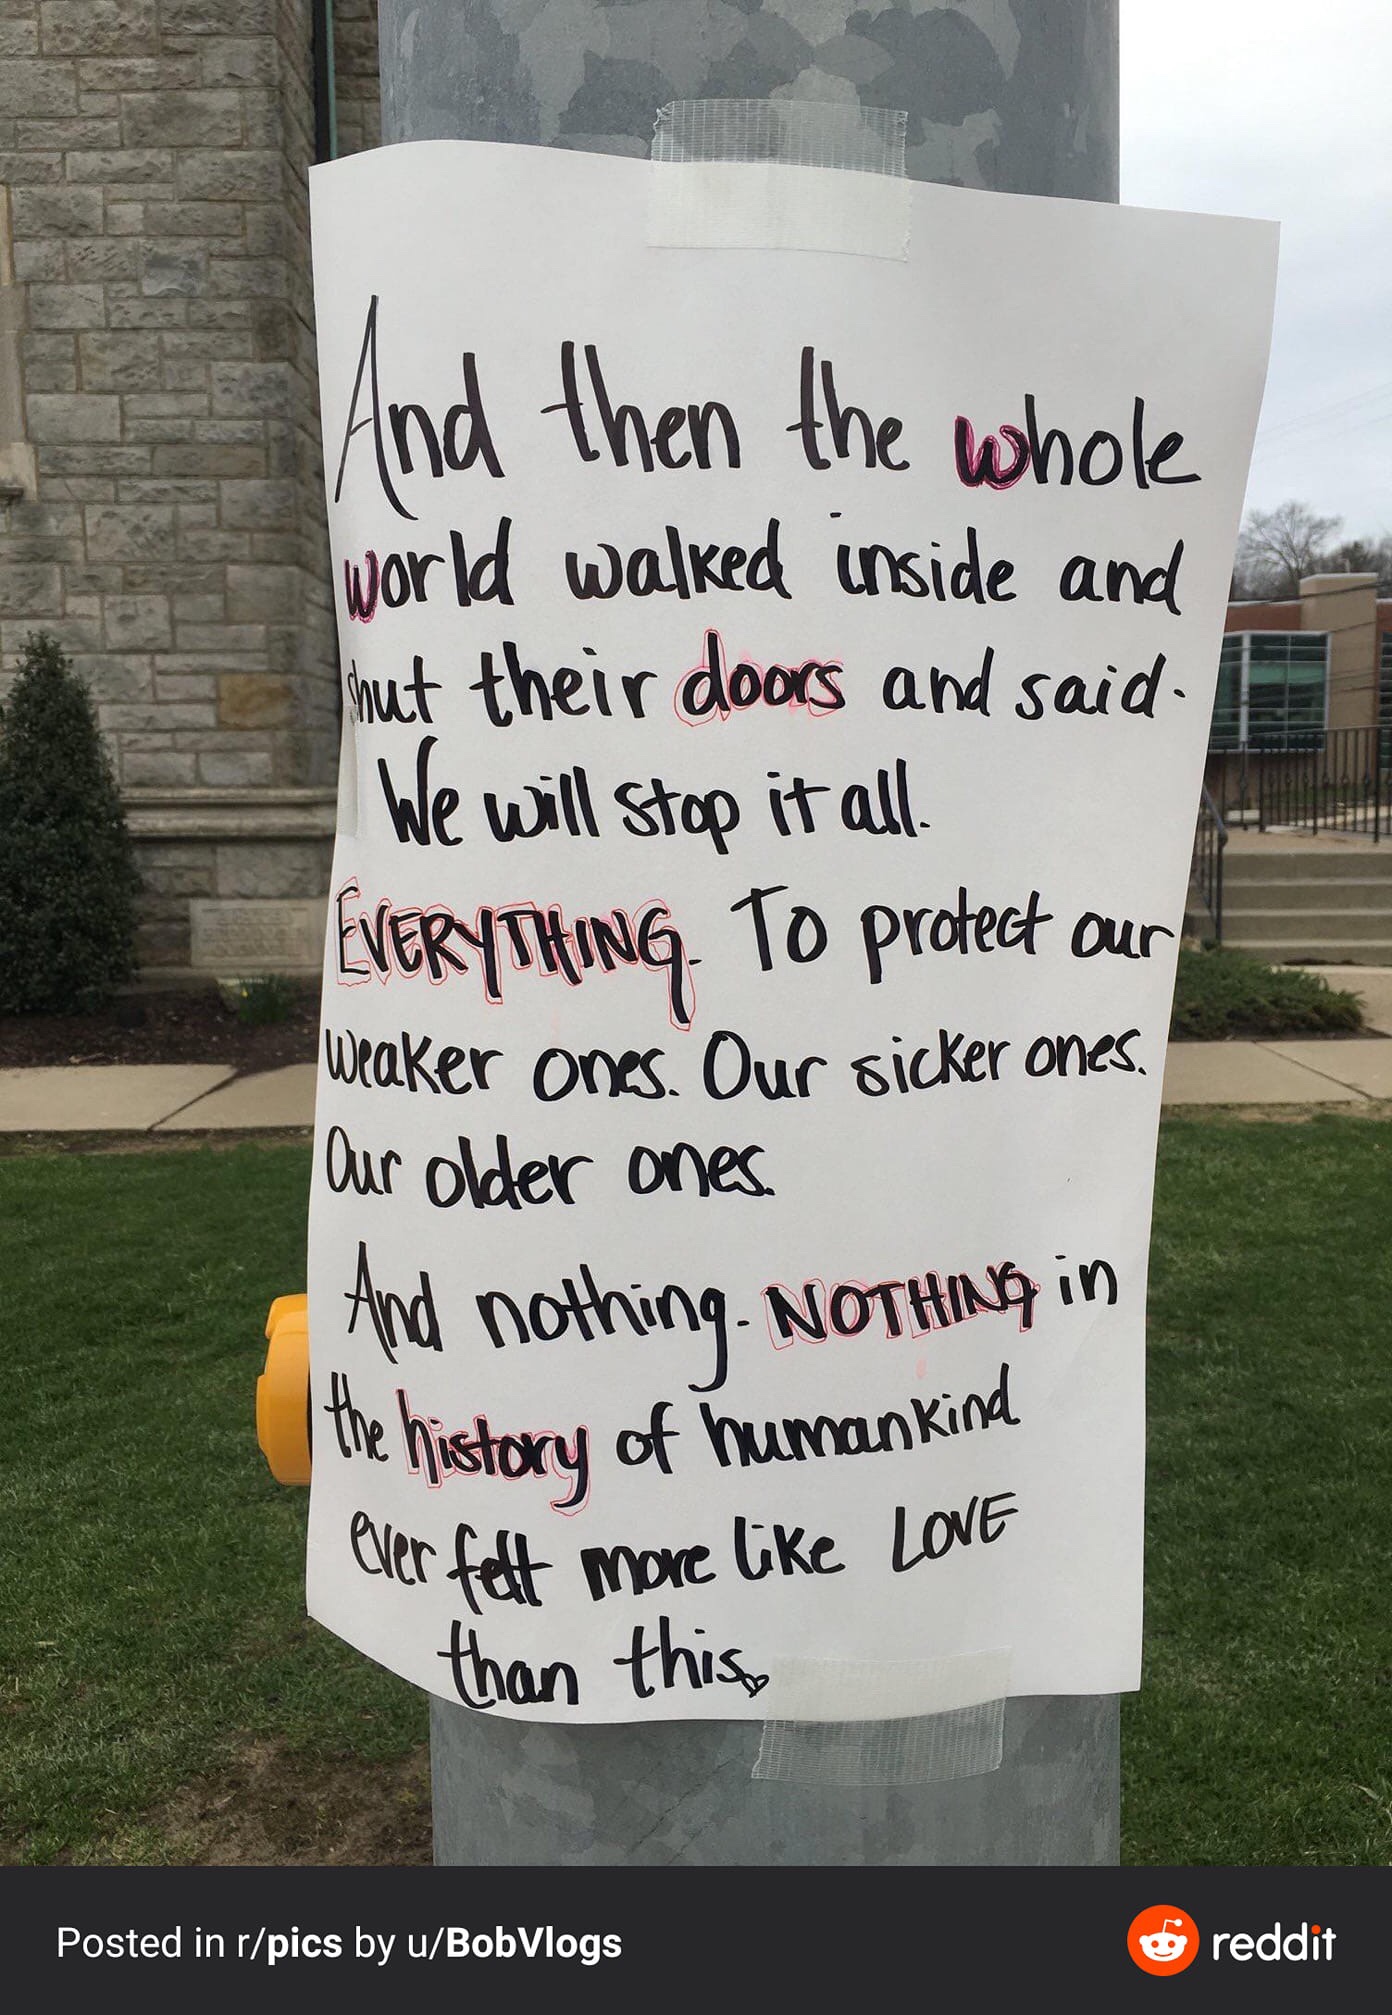 And then the whole
world walked inside and
shut their doors and said-
We will stop it all.
EVERYTHING. To protect our
weaker ones. Our sicker ones.
Our older ones.
And nothing. NOTHING in
the history of humankind
ever felt more like LOVE
than this
Posted in r/pics by u/BobVlogs
reddit